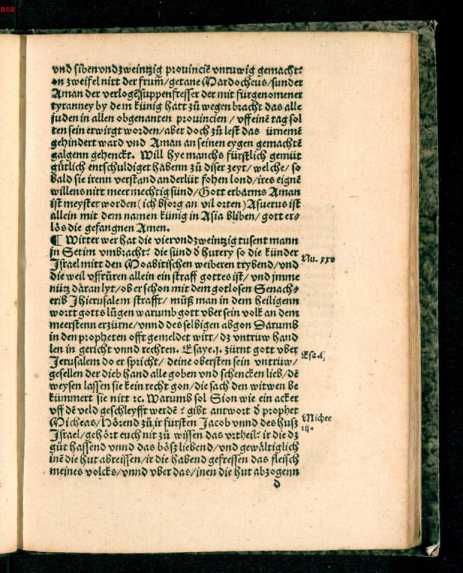 vnd sibenvndzweintzig prouinciē vnruwig gemacht:
on zweifel nitt der frum̄/getane Mardocheus/sunder
Aman der verlogē suppenfresser der mit fürgenomener
tyranney by dem künig hatt zů wegen bracht das alle
juden in allen obgenanten prouincien/vff eine tag sol
ten sein erwirgt worden/aber doch zů lest das ürnemē
gehindert ward vnd Aman an seinen eygen gemachtē
galgenn gehenckt. Will hye manchs fürstlich gemüt
gütlich entschuldiget habenn zů diser zeyt/welche/so
bald sie irenn verstand anderlüt fohen lond/ires eignē
willens nitt meer mechtig sind/Gott erbarms Aman
ist meyster worden (ich bsorg an vil orten) Asuerus ist
allein mit dem namen künig in Asia bliben/gott erlö
lös die gefangnen Amen.
¶ Witter wer hat die viervndzweintzig tusent mann
in Setim vmbracht: die sünd d hurery so die kinder
Israel mitt den Moabitischen weiberen trybend/vnd
die weil vffrüren allein ein straff gottes ist/vnd jmme
nütz daran lyt/ob er schon mit dem gotlosen Senach=
erib Jherusalem strafft/můß man in dem heiligenn
wortt gotts lůgen warumb gott vber sein volk an dem
meerstenn erzürne/vnnd desselbigen abgon Darumb
in den propheten offt gemeldet wirt/dz vntruw hand
len in gericht vnnd rechten. Esaye.1. zürnt gott vber
Jerusalem do er spricht/deine obersten sein vntrüw/
gesellen der dieb hand alle goben vnd schencken lieb/dē
weysen lassen sie kein recht gon/die sach den witwen be
kümmert sie nitt ⁊c. Warumb sol Sion wie ein acker
vff dē veld geschleyfft werdē: gibt antwort d prophet
Micheas/Hörend zů ir fürsten Jacob vnnd des huß
Israel/gehört euch nit zů wissen das vrtheil: ir die dz
gůt hassend vnnd das böß liebend/vnd gewaltiglich
inē die hut abreissen/ir die habend gefressen das fleisch
meines volcks/vnnd vber das/inen die hut abzogenn
d
Nu. xxv
Esa.i.
Michee
iij.